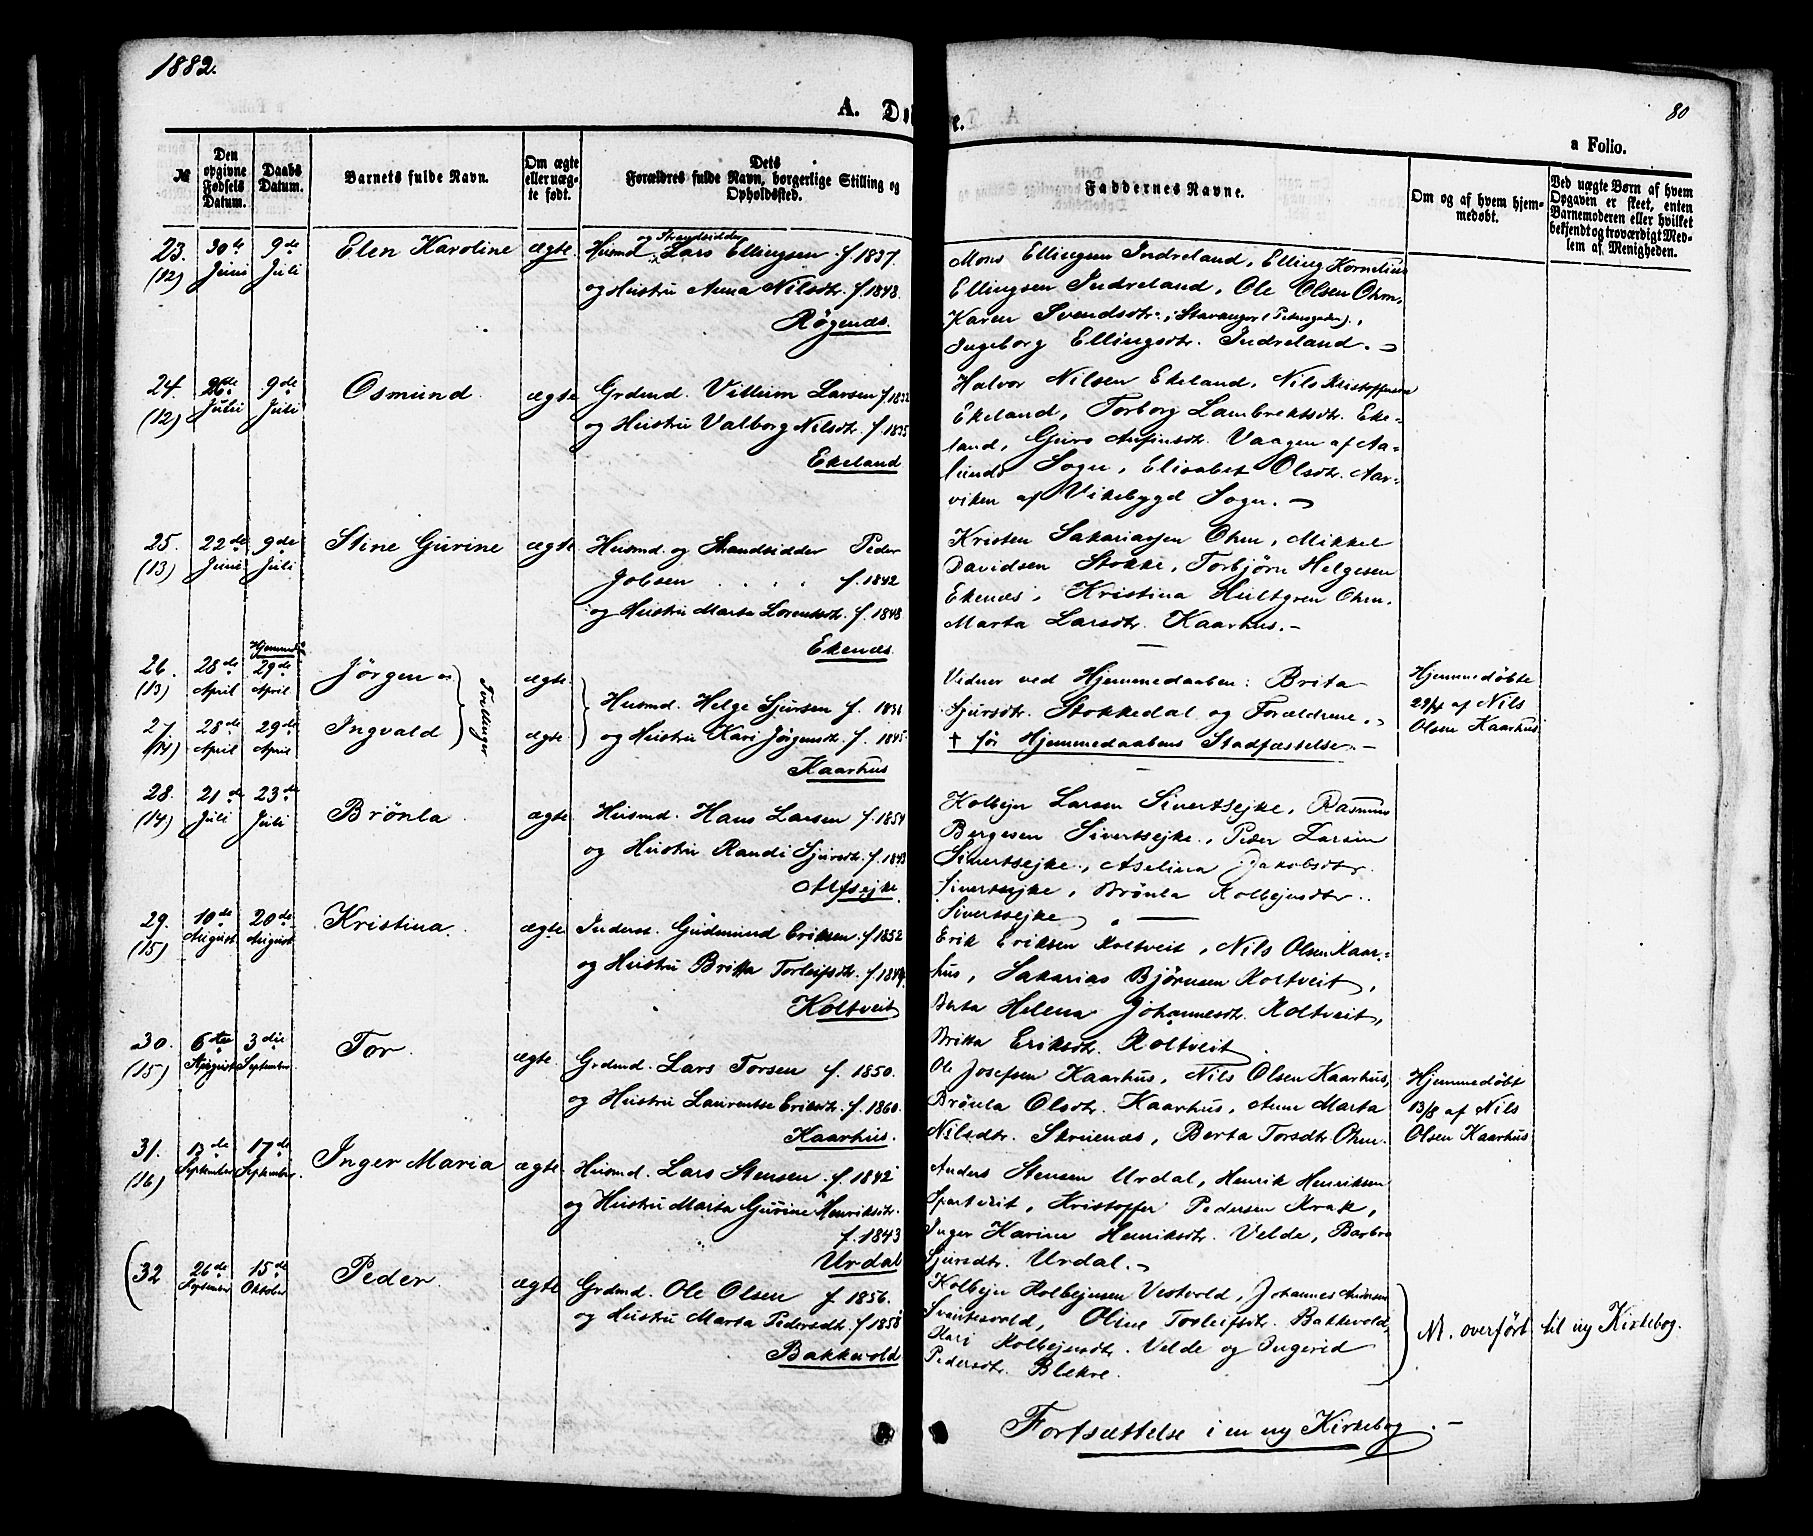 1882.
80
A. D
e.
a Folio.
№
Den opgivne Fødsels Datum.
Daabs Datum.
Barnets fulde Navn.
Om ægte eller uægte født.
Dets Forældres fulde Navn, borgerlige Stilling og Opholdssted.
Faddernes Navne.
Om og af hvem hjemmedøbt.
Ved uægte Børn af hvem Opgaven er skeet, enten Barnemoderen eller hvilket bekjendt og troværdigt Medlem af Menigheden.
23.
(12)
30te Juni
9de Juli
Elen Karoline
ægte
Husmd. og Strandsidder Lars Ellingsen f. 1837.
og Hustru Anna Nilsdtr. f. 1848.
Røgenæs.
Mons Ellingsen Indreland, Elling Kornelius
Ellingsen Indreland, Ole Olsen Ohm,
Karen Svendsdtr., Stavanger (Pedersgaden),
Ingeborg Ellingsdtr. Indreland.
24.
(12)
9de Juli
Osmund.
ægte
Grdmd. Villum Larsen f. 1832
og Hustru Valborg Nilsdtr. f. 1835
Ekeland
Halvor Nilsen Ekeland, Nils Kristoffersen
Ekeland, Torborg Lambrektsdtr. Eke-
land, Guro Anfinsdtr. Vaagen af Aa-
lunds Sogn, Elisabet Olsdtr. Aar-
viken af Vikebygd Sogn.
25.
(13)
22de Juni
9de Juli
Stine Gurine
ægte
Husmd. og Strandsidder Peder
Jobsen . . . . f. 1842
og Hustru Marta Lorentsdtr. f. 1848
Ekenæs.
Kristen Sakariasen Ohm, Mikkel
Davidsen Stokke, Torbjørn Helgesen
Ekenæs, Kristina Hultgren Ohm.
Marta Larsdtr. Kaarhus.
26.
(13)
28de April
Hjemmed.
29de April
Jørgen og
Tvillinger
ægte.
Husmd. Helge Sjursen f.
Vidner ved Hjemmedaaben: Brita
Sjursdtr. Stokkedal og Forældrene.
Hjemmedøbte
29/4 af Nils
Olsen Kaarhus
27.
(14)
28de April
29de April
Ingvald
ægte
og Hustru Kari Jørgensdtr. f. 1845
Kaarhus
† før Hjemmedaabens Stadfæstelse.
28.
(14)
21de Juli
23de Juli
Brønla.
ægte
Husmd. Hans Larsen f. 1854
og Hustru Randi Sjursdtr. f. 1843
Alfsejke
Kolbejn Larsen Sivertsejke, Rasmus
Bergesen Sivertsejke, Peder Larsen
Sivertsejke, Aselina Jakobsdtr.
Sivertsejke, Brønla Kolbejnsdtr.
Sivertsejke
29.
(15)
10de August
20de August
Kristina.
ægte
Inderst. Gudmund Eriksen f. 1852
og Hustru Britta Torleifsdtr. f. 1844
Koltveit
Erik Eriksen Koltveit, Nils Olsen Kaar-
hus, Sakarias Bjørnsen Koltveit,
Berta Helena Johannesdtr. Koltveit,
Britta Eriksdtr. Koltveit.
30.
(15)
6te August
3die September
Tor.
ægte.
Grdmd. Lars Torsen f. 1850.
og Hustru Laurentse Eriksdtr. f. 1860.
Kaarhus.
Ole Josefsen Kaarhus, Nils Olsen Kaarhus,
Brønla Olsdtr. Kaarhus, Anne Marta
Nilsdtr. Skruenæs, Berta Torsdtr. Ohm.
Hjemmedøbt
13/8 af Nils
Olsen Kaarhus
31.
(16)
September
17de September
Inger Maria
ægte
Husmd. Lars Stensen f. 1842
og Hustru Marta Gurine Henriksdtr.
f. 1843
Urdal
Anders Stensen Urdal, Henrik Henriksen
Spartveit, Kristoffer Pedersen Krak,
Inger Karine Henriksdtr. Velde, Barbro
Sjursdtr. Urdal.
(32
26de September
15de Oktober
Peder.
ægte
Grdmd. Ole Olsen f. 1856.
og Hustru Marta Pedersdtr. f. 1858
Bakkevold
Kolbejn Kolbejnsen Vestvold, Johannes
Svantesvold, Oline Torleifsdtr. Bakkevold,
Kari Kolbejnsdtr. Velde og Ingerid
Pedersdtr. Blekre.
N. overført til ny Kirkebog.
Fortsættelse i en ny Kirkebog.